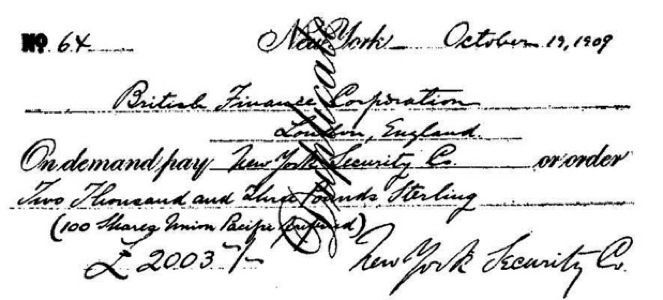 No. 64 New York October 19, 1909
British Finance Corporation
London, England.
On demand pay New York Security Co. or order
Two Thousand and Three Pounds Sterling
(100 Shares Union Pacific preferred)
£ 2003 -/-
New York Security Co.
Duplicate